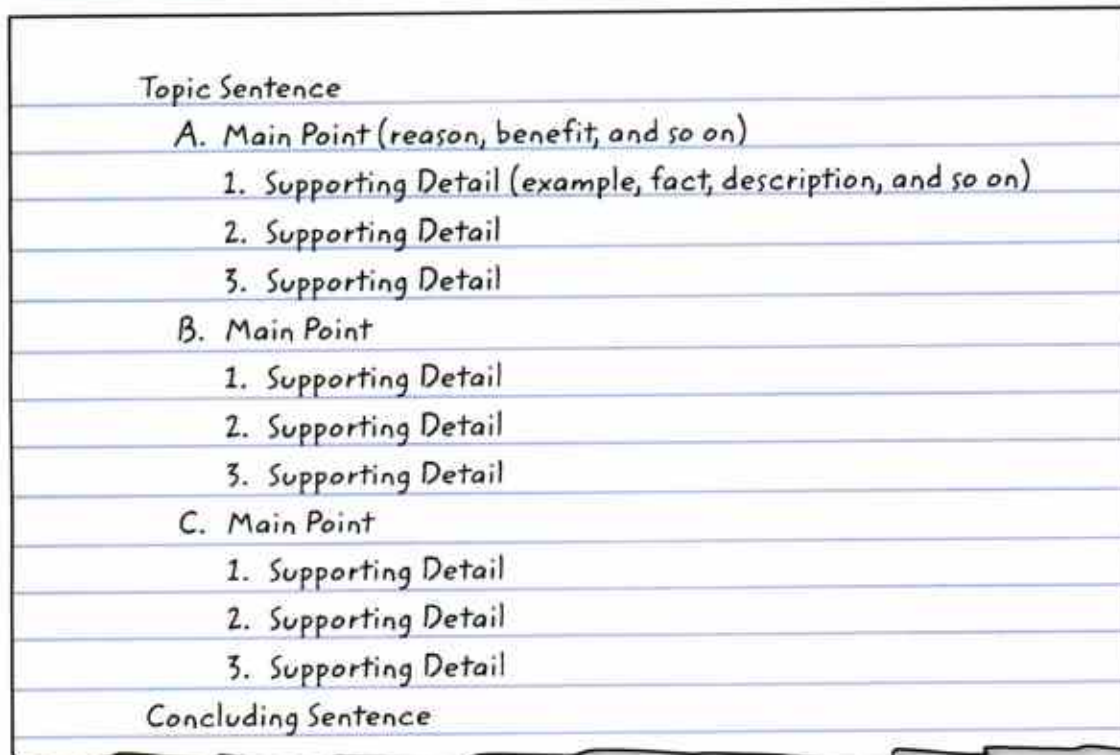 Topic Sentence
A. Main Point (reason, benefit, and so on)
1. Supporting Detail (example, fact, description, and so on)
2. Supporting Detail
3. Supporting Detail
B. Main Point
1. Supporting Detail
2. Supporting Detail
3. Supporting Detail
C. Main Point
1. Supporting Detail
2. Supporting Detail
3. Supporting Detail
Concluding Sentence